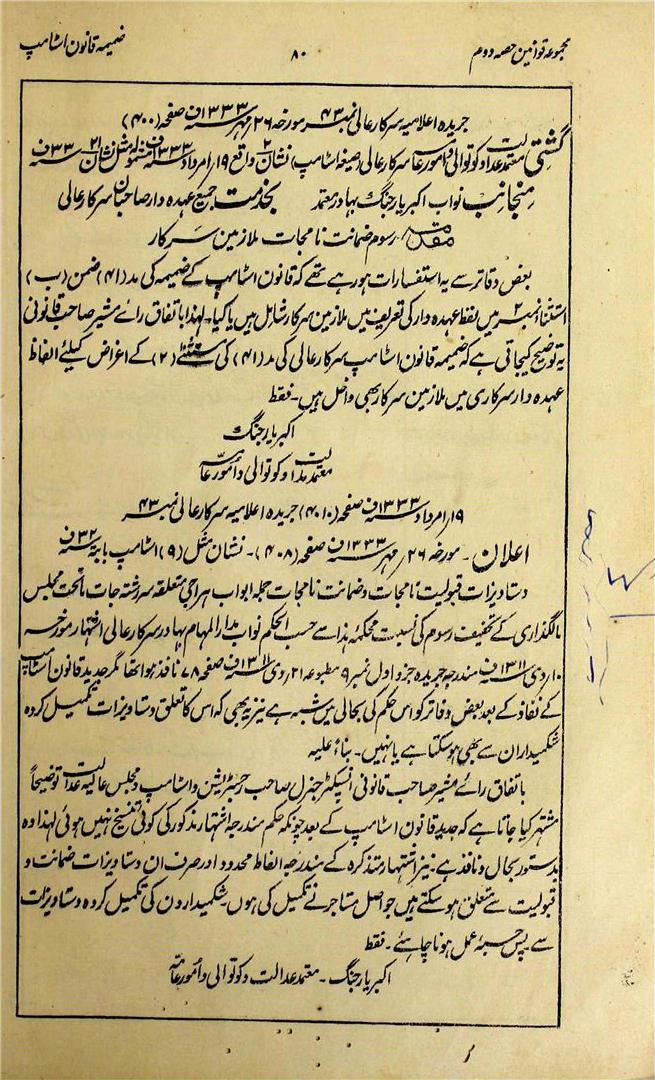 مجموعہ قوانین حصہ دوم
۸۰
ضمیمہ قانون اسٹامپ
جریدہ اعلامیہ سرکار عالی نمبر ۴۳ مورخہ ۲۶ مہر سنہ ۱۳۳۳ف صفحہ (۴۰۰)
گشتی معتمد عدالت و کوتوالی و امور عامہ سرکار عالی (صیغہ اسٹامپ) نشان ۲ واقع ۱۹ امرداد سنہ ۱۳۳۳ف منسلکہ مثل نشان ۲۱ سنہ ۳۳ف
منجانب نواب اکبر یار جنگ بہادر معتمد بخدمت جمیع عہدہ دار صاحبان سرکار عالی
مقدمہ رسوم ضمانت نامجات ملازمین سرکار
بعض دفاتر سے یہ استفسارات ہو رہے تھے کہ قانون اسٹامپ کے ضمیمہ کی مد (۴۱) ضمن (ب)
استثناء نمبر ۲ میں لفظ عہدہ دار کی تعریف میں ملازمین سرکار شامل ہیں یا کیا۔ لہذا باتفاق رائے مشیر صاحب قانونی
یہ توضیح کیجاتی ہے کہ ضمیمہ قانون اسٹامپ سرکار عالی کی مد (۴۱) کی مستثنے (۲) کے اغراض کیلئے الفاظ
عہدہ دار سرکاری میں ملازمین سرکار بھی داخل ہیں۔ فقط
اکبر یار جنگ
معتمد عدالت و کوتوالی و امور عامہ
۱۹ امرداد سنہ ۱۳۳۳ف صفحہ (۴۰۱۰) جریدہ اعلامیہ سرکار عالی نمبر ۴۳
اعلان۔ مورخہ ۲۶ مہر سنہ ۱۳۳۳ف صفحہ (۴۰۸)۔ نشان مثل (۹) اسٹامپ بابتہ سنہ ۳۲ف
دستاویزات قبولیت نامجات و ضمانت نامجات جملہ ابواب ہراجی متعلقہ سررشتہ جات ماتحت مجلس
مالگذاری کے تخفیف رسوم کی نسبت محکمہ ہذا سے حسب الحکم نواب مدار المہام بہادر سرکار عالی اشتہار مورخہ
۱۰ دی سنہ ۱۳۱۱ف مندرجہ جریدہ جزو اول نمبر ۹ مطبوعہ ۲۱ دی سنہ ۱۳۱۱ف صفحہ ۷۸ نافذ ہوا تھا مگر جدید قانون اسٹامپ
کے نفاذ کے بعد بعض دفاتر کو اس حکم کی بحالی میں شبہ ہے نیز یہ بھی کہ اس کا تعلق دستاویزات تکمیل کردہ
شکمیداران سے بھی ہو سکتا ہے یا نہیں۔ بناءً علیہ
باتفاق رائے مشیر صاحب قانونی انسپکٹر جنرل صاحب رجسٹریشن و اسٹامپ و مجلس عالیہ عدالت توضیحاً
مشتہر کیا جاتا ہے کہ جدید قانون اسٹامپ کے بعد چونکہ حکم مندرجہ اشتہار مذکور کی کوئی تنسیخ نہیں ہوئی لہذا وہ
بدستور بحال و نافذ ہے۔ نیز اشتہار متذکرہ کے مندرجہ الفاظ محدود اور صرف ان دستاویزات ضمانت و
قبولیت سے متعلق ہو سکتے ہیں جو اصل مستاجر نے تکمیل کی ہوں۔ شکمیدارون کی تکمیل کردہ دستاویزات
سے۔ پس حسبہٗ عمل ہونا چاہئے۔ فقط
اکبر یار جنگ۔ معتمد عدالت و کوتوالی و امور عامہ